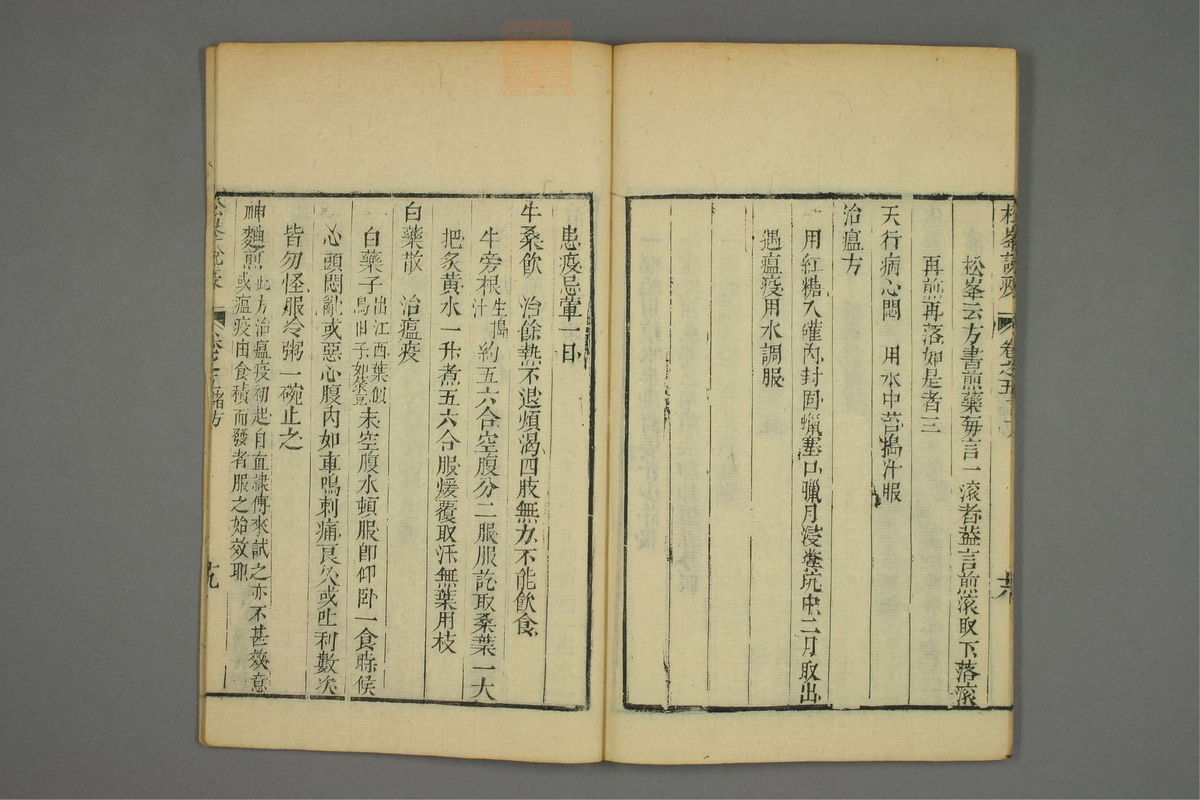 松峯說疫 卷之五
松峯云方書煎藥每言一滾者葢言煎滾取下落滾
再煎再落如是者三
天行病心悶 用水中苔搗汁服
治瘟方
用紅糖入罐內封固蠟塞口臘月浸糞坑中二月取出
遇瘟疫用水調服
患疫忌葷一日
牛桑飲 治餘熱不退煩渴四肢無力不能飲食
牛旁根生搗汁約五六合空腹分二服服訖取桑葉一大
把炙黃水一升煮五六合服煖覆取汗無葉用枝
白藥散 治瘟疫
白藥子出江西葉似烏臼子如菉豆末空腹水頓服卽仰臥一食時候
心頭悶亂或惡心腹內如車鳴刺痛良久或吐利數次
皆勿怪服冷粥一碗止之
神麯煎此方治瘟疫初起自直隷傳來試之亦不甚效意或瘟疫由食積而發者服之始效耶
松峯說疫 卷之五 諸方